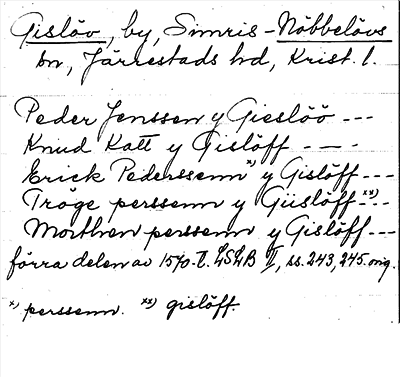 Gislöv, by, Simris-Nöbbelövs
sn, Järrestads hd, Krist. l.
Peder Jenssen y Gieslöö ---
Knud Katt y Gislöff ---
Erick Pederssenn x) y Gislöff ---
Tröge perssenn y Giislöff xx) ---
Morthen perssenn y Gislöff ---
förra delen av 1570-t. LSLB II, ss. 243, 245. orig.
x) perssenn. xx) gislöff.